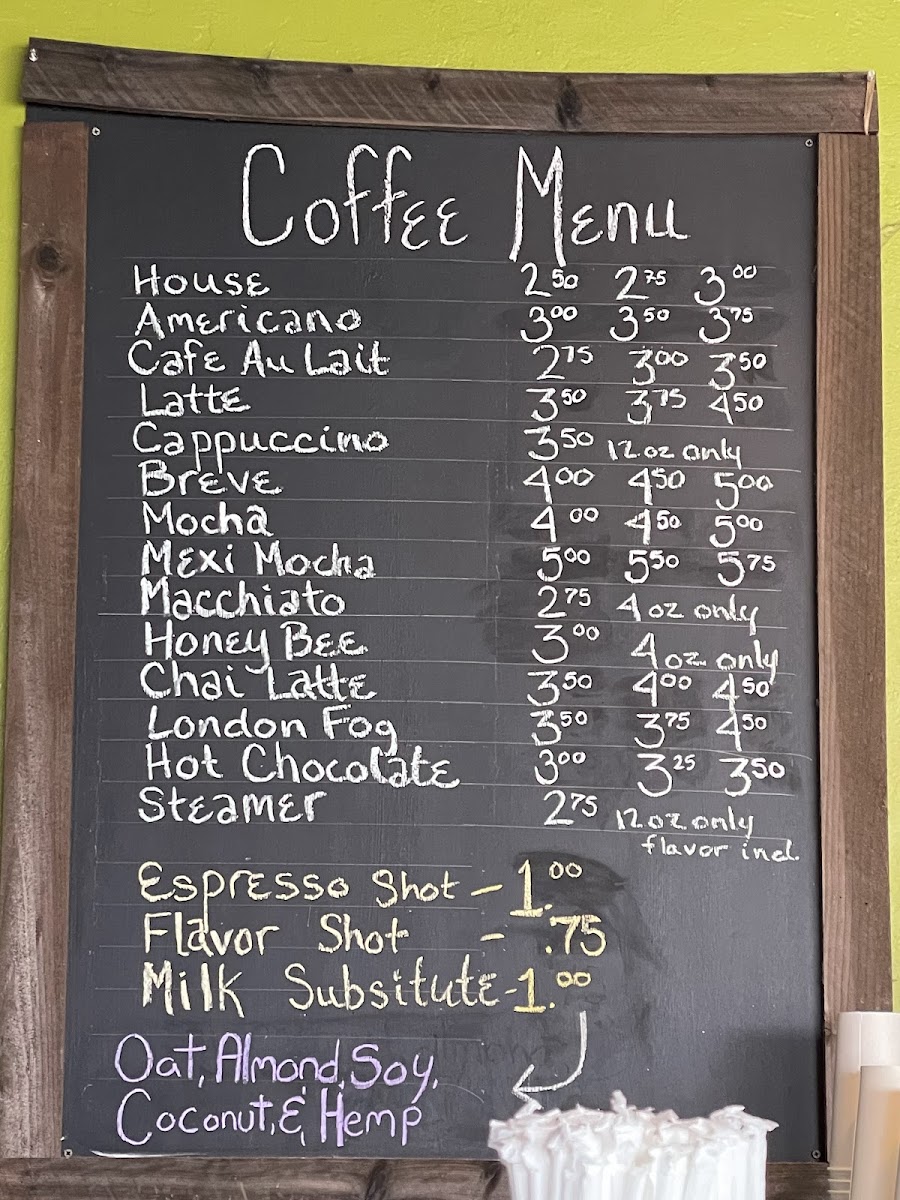 Coffee Menu
House 2.50 2.75 3.00
Americano 3.00 3.50 3.75
Cafe Au Lait 2.75 3.00 3.50
Latte 3.50 3.75 4.50
Cappuccino 3.50 12 oz only
Breve 4.00 4.50 5.00
Mocha 4.00 4.50 5.00
Mexi Mocha 5.00 5.50 5.75
Macchiato 2.75 4 oz only
Honey Bee 3.00 4 oz only
Chai Latte 3.50 4.00 4.50
London Fog 3.50 3.75 4.50
Hot Chocolate 3.00 3.25 3.50
Steamer 2.75 12 oz only
flavor incl.
Espresso Shot - 1.00
Flavor Shot - .75
Milk Subsitute - 1.00
Oat, Almond, Soy,
Coconut, & Hemp